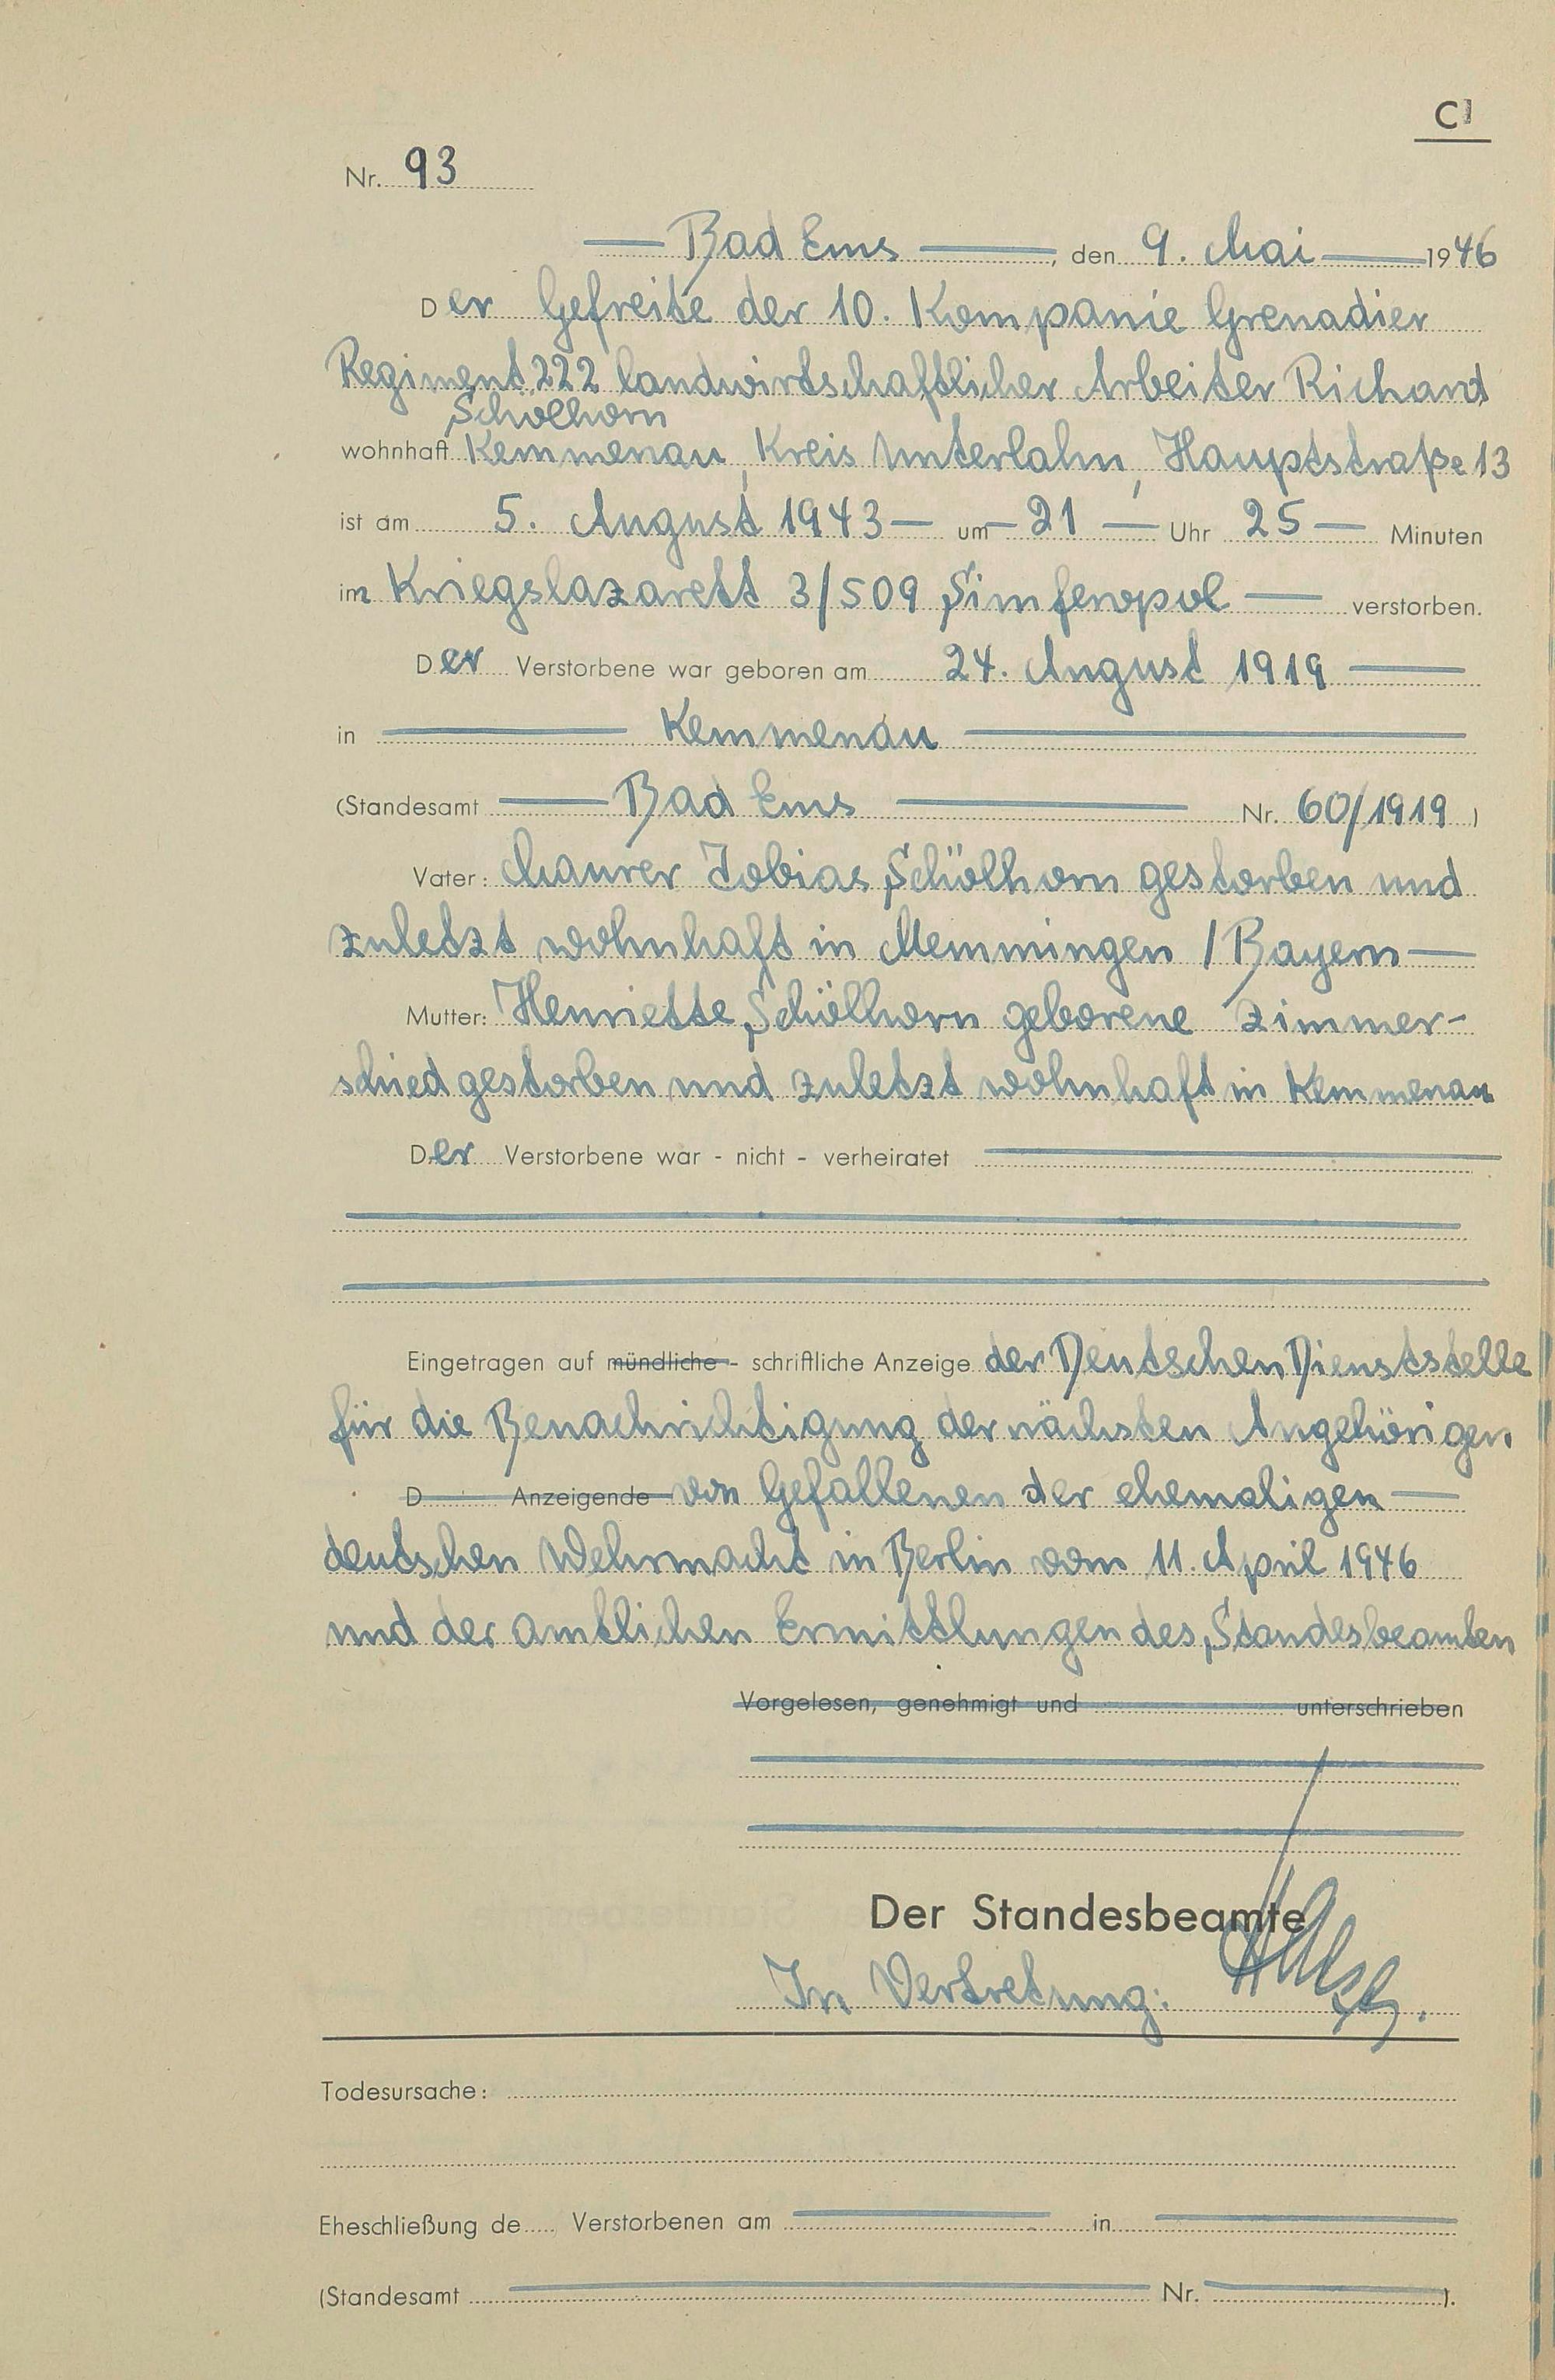 C
Nr. 93
Bad Ems, den 9. Mai 1946
Der Gefreite der 10. Kompanie Grenadier
Regiment 222 landwirtschaftlicher Arbeiter Richard
Schölhorn
wohnhaft Kemmenau, Kreis Unterlahn, Hauptstraße 13
ist am 5. August 1943 um 21 Uhr 25 Minuten
im Kriegslazarett 3/509 Simferopol verstorben.
Der Verstorbene war geboren am 24. August 1919
in Kemmenau
(Standesamt Bad Ems Nr. 60/1919)
Vater: Maurer Tobias Schölhorn gestorben und
zuletzt wohnhaft in Memmingen / Bayern
Mutter: Henriette Schölhorn geborene Zimmer-
schied gestorben und zuletzt wohnhaft in Kemmenau
Der Verstorbene war - nicht - verheiratet
Eingetragen auf mündliche - schriftliche Anzeige der Deutschen Dienststelle
für die Benachrichtigung der nächsten Angehörigen
D Anzeigende von Gefallenen der ehemaligen
deutschen Wehrmacht in Berlin vom 11. April 1946
und der amtlichen Ermittlungen des Standesbeamten
Vorgelesen, genehmigt und unterschrieben
Der Standesbeamte
In Vertretung:
Todesursache:
Eheschließung de Verstorbenen am in
(Standesamt Nr. ).